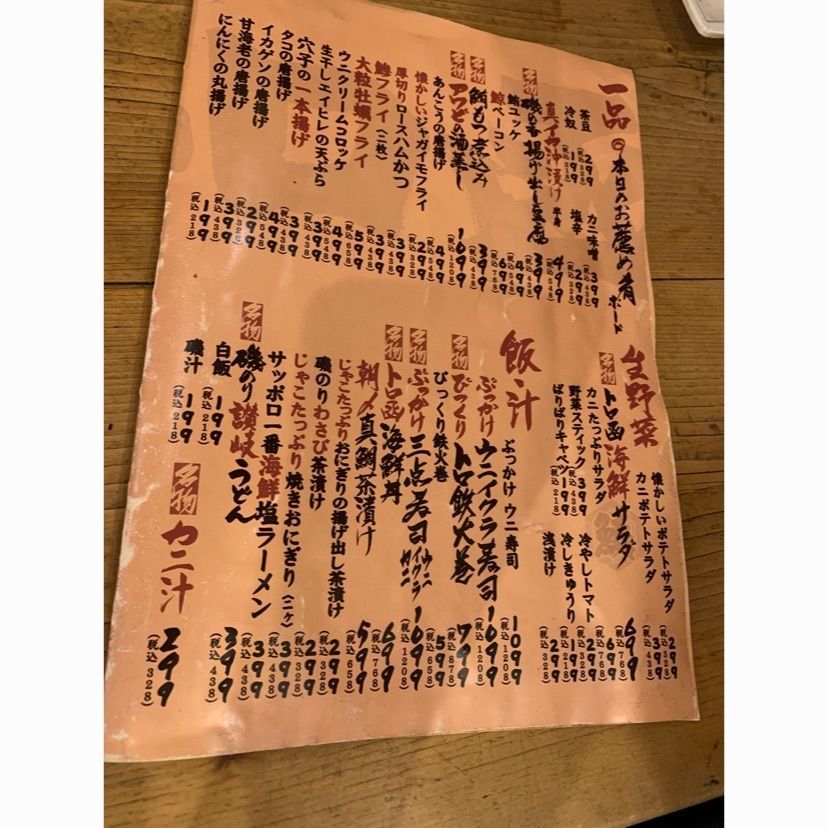 一品 ◎本日のお薦め肴 ボード
茶豆 299 (税込328)
冷奴 199 (税込218)
カニ味噌 399 (税込438)
塩辛 299 (税込328)
真イカ沖漬け 半身 499 (税込548)
名物 磯の香揚げ出し豆腐 399 (税込438)
鮪ユッケ 499 (税込548)
鯨ベーコン 699 (税込768)
名物 鯛もつ煮込み 399 (税込438)
名物 アワビの酒蒸し 1099 (税込1208)
あんこうの唐揚げ 499 (税込548)
懐かしいジャガイモフライ 299 (税込328)
厚切りロースハムかつ 399 (税込438)
鯵フライ 399 (税込438)
大粒牡蠣フライ (二枚) 599 (税込658)
ウニクリームコロッケ 499 (税込548)
生干しエイヒレの天ぷら 399 (税込438)
穴子の一本揚げ 399 (税込438)
タコの唐揚げ 499 (税込548)
イカゲソの唐揚げ 299 (税込328)
甘海老の唐揚げ 399 (税込438)
にんにくの丸揚げ 199 (税込218)
生野菜
懐かしいポテトサラダ 299 (税込328)
カニポテトサラダ 399 (税込438)
名物 トロ函 海鮮サラダ 699 (税込768)
カニたっぷりサラダ 699 (税込768)
野菜スティック 399 (税込438)
ぱりぱりキャベツ 199 (税込218)
冷やしトマト 299 (税込328)
冷しきゅうり 199 (税込218)
浅漬け 299 (税込328)
飯・汁
ぶっかけ ウニ寿司 1099 (税込1208)
ぶっかけ ウニイクラ寿司 1099 (税込1208)
名物 びっくり トロ鉄火巻 799 (税込878)
びっくり鉄火巻 599 (税込658)
名物 ぶっかけ 三点寿司 ウニ イクラ カニ 1099 (税込1208)
名物 トロ函 海鮮丼 699 (税込768)
朝〆真鯛茶漬け 599 (税込658)
じゃこたっぷりおにぎりの揚げ出し茶漬け 299 (税込328)
磯のりわさび茶漬け 299 (税込328)
じゃこたっぷり焼きおにぎり (二ケ) 399 (税込438)
サッポロ一番海鮮塩ラーメン 399 (税込438)
名物 磯のり讃岐うどん 399 (税込438)
白飯 199 (税込218)
磯汁 199 (税込218)
名物 カニ汁 299 (税込328)